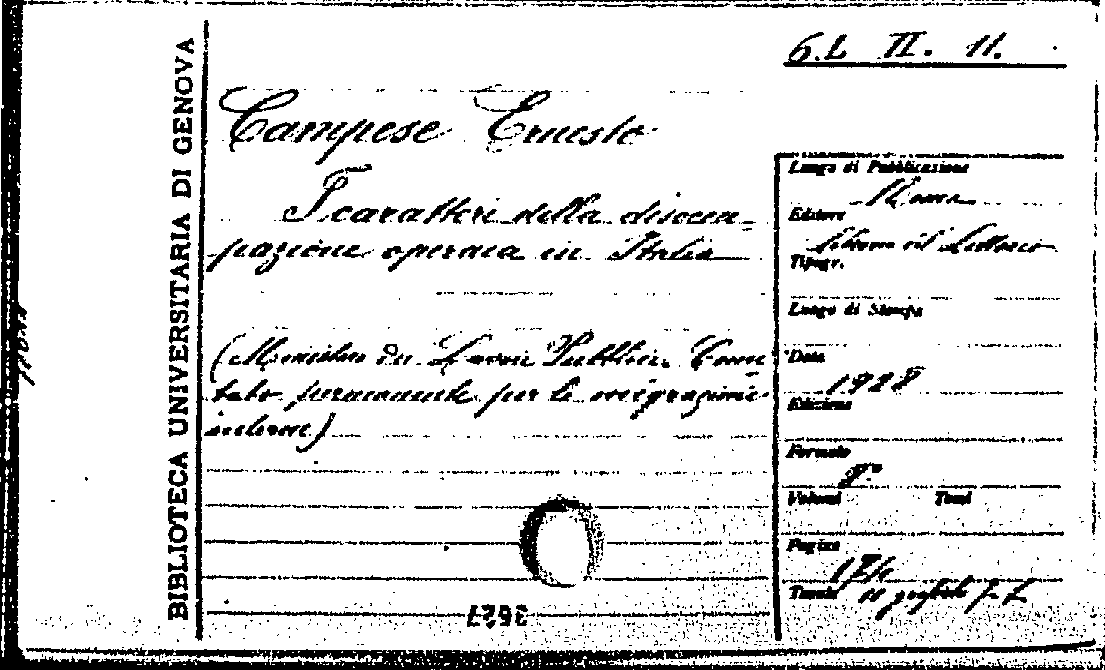 BIBLIOTECA UNIVERSITARIA DI GENOVA
6.L II. 11.
Campese Ernesto
I caratteri della disoccu=
pazione operaia in Italia
(Ministero dei Lavori Pubblici. Comi
tato permanente per le migrazioni
interne)
Luogo di Pubblicazione
Roma
Editore
Tipogr.
Luogo di Stampa
Data
1928
Edizione
Formato
8°
Volumi Tomi
Pagine
Tavole
3627